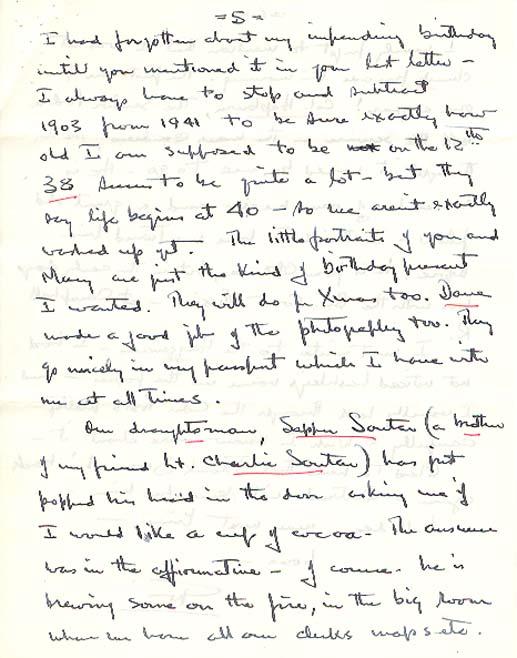 = 5 =
I had forgotten about my impending birthday
until you mentioned it in your last letter -
I always have to stop and subtract
1903 from 1941 to be sure exactly how
old I am supposed to be on the 12th
38 seems to be quite a lot - but they
say life begins at 40 - so we aren't exactly
washed up yet. The little portraits of you and
Mary are just the kind of birthday present
I wanted. They will do for Xmas too. Dave
made a good job of the photography too. They
go nicely in my passport which I have with
me at all times.
Our draughtsman, Sapper Soutar (a brother
of my friend Lt. Charlie Soutar) has just
popped his head in the door asking me if
I would like a cup of cocoa - The answer
was in the affirmative - of course. he is
brewing some on the fire, in the big room
where we have all our clerks maps etc.